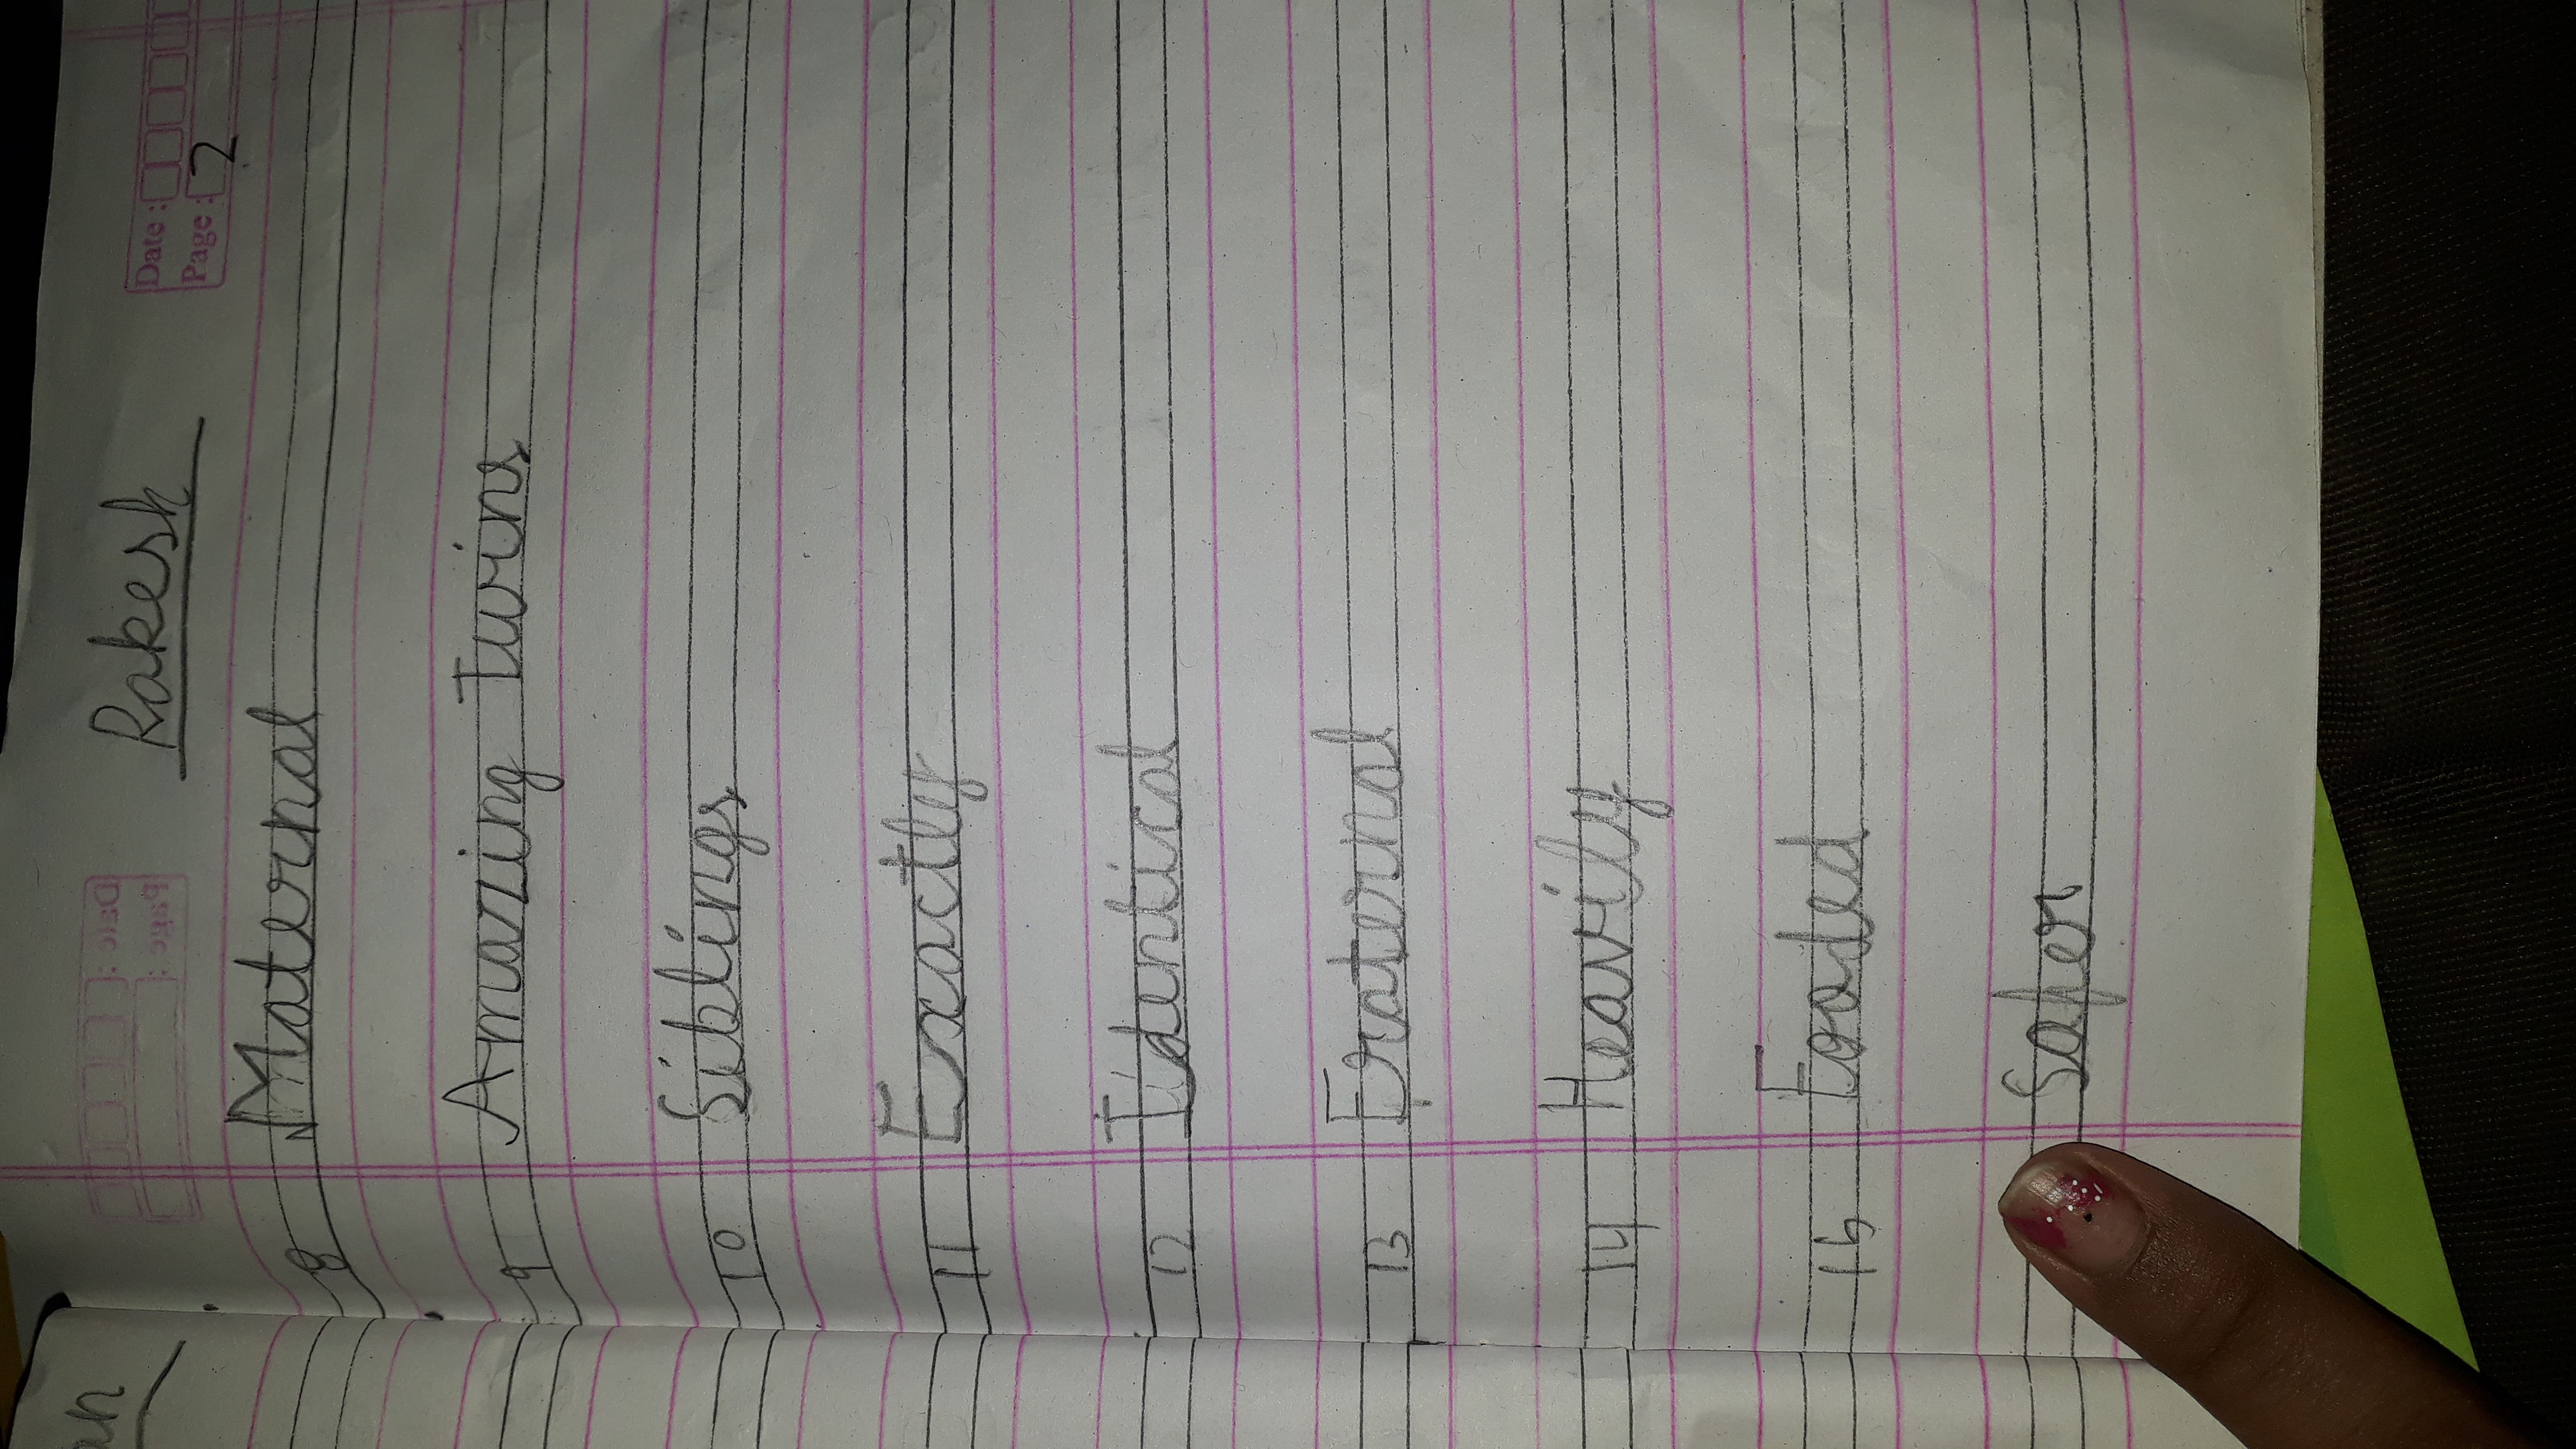 an
Rakesh
Date :
Page : 2
8 Maternal
9 Amazing Twins
10 Siblings
11 Exactly
12 Identical
13 Fraternal
14 Heavily
15 Fooded
Safer